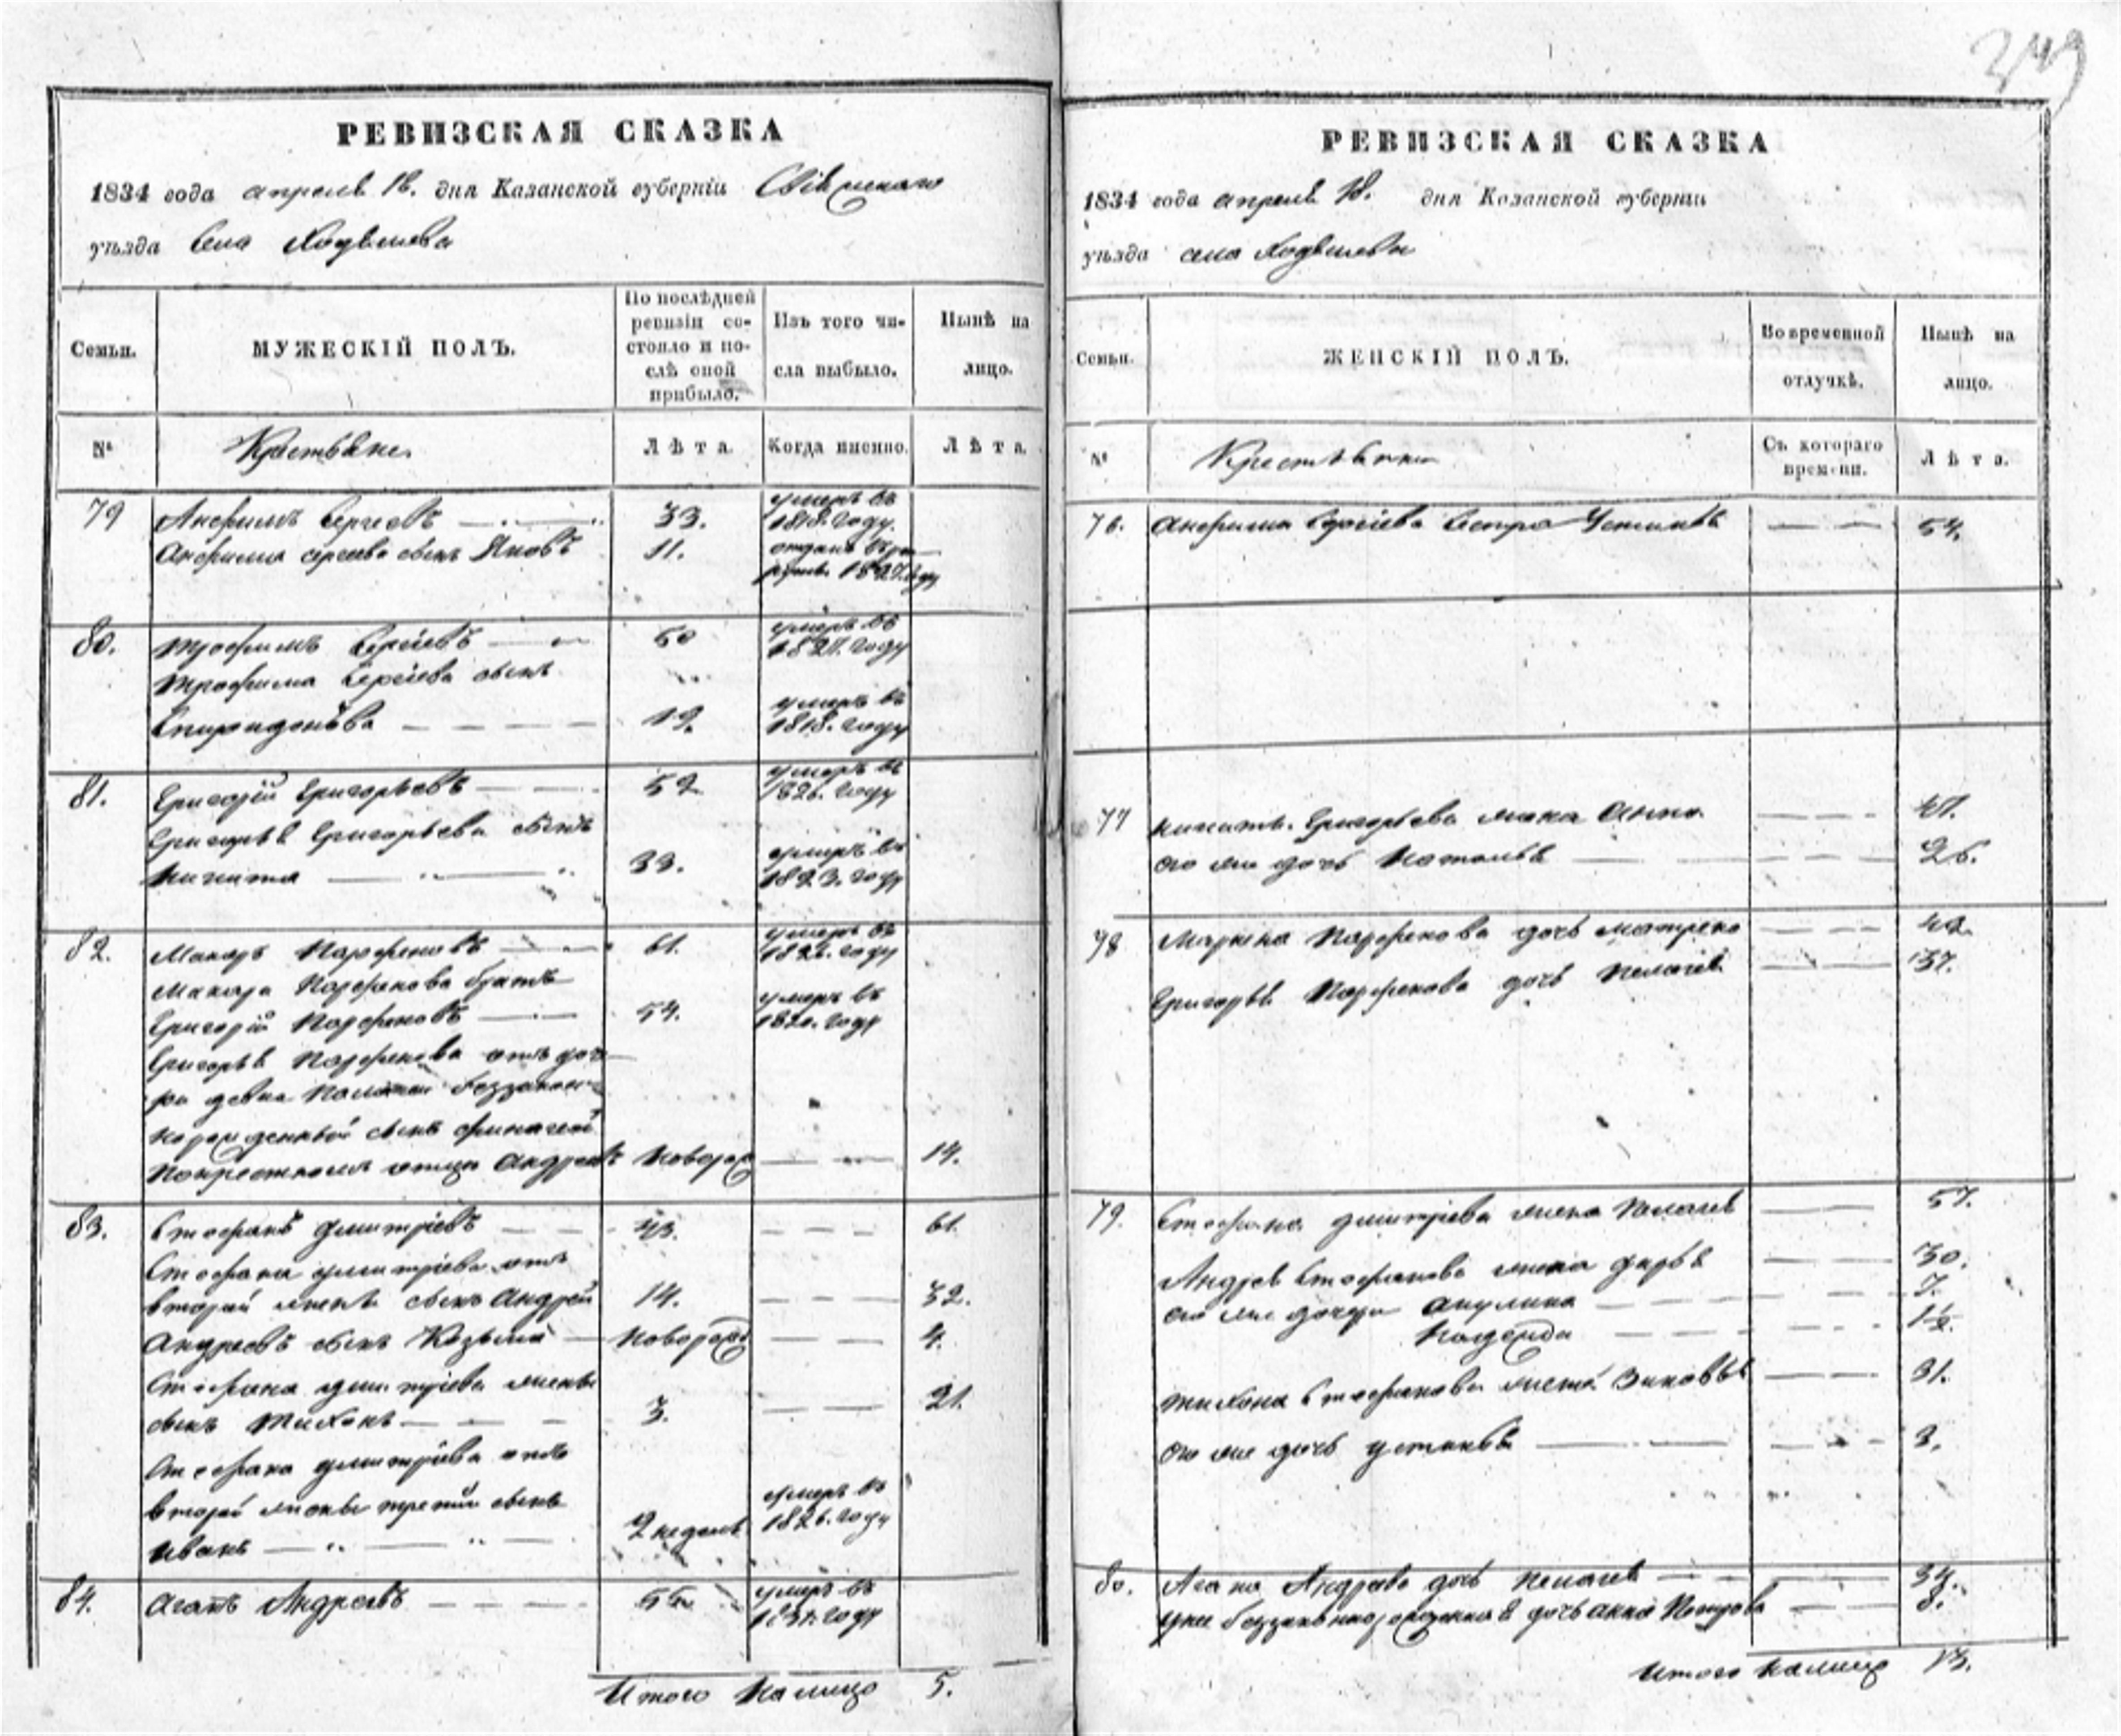 349
РЕВИЗСКАЯ СКАЗКА
1834 года апреля 18. дня Казанской губерніи Свіяжскаго
уѣзда села Ходяшева
Семьи.
МУЖЕСКІЙ ПОЛЪ.
По послѣдней
ревизіи со-
стояло и по-
слѣ оной
прибыло.
Изъ того чи-
сла выбыло.
Нынѣ на
лицо.
№
Крестьяне
Лѣта.
Когда именно.
Лѣта.
79 Анфимъ Сергеевъ 33. умеръ въ 1818. году.
Анфима сергеева сынъ Яковъ 11. отданъ въ 1827. году
80. трофимъ Сергѣевъ 60 умеръ въ 1827. году
трофима Сергѣева сынъ
Спиридонъ 19. умеръ въ 1818. году
81. Григорій Григорьевъ 52 умеръ въ 1826. году
Григорья Григорьева сынъ
Никита 33. умеръ въ 1823. году
82. Макаръ Парфеновъ 61. умеръ въ 1826. году
Макара Парфенова братъ
Григорій Парфеновъ 54. умеръ въ 1820. году
Григорья Парфенова отъ доче-
ри девки Пелагеи беззаконно
рожденной сынъ
покрестномъ отцу Андреевъ новорож 14.
83. Стефанъ дмитріевъ 43. 61.
Стефана дмитріева отъ
второй жены сынъ Андрей 14. 32.
Андреевъ сынъ Козьма новорож 4.
Стефана дмитріева жены
сынъ Тихонъ 3. 21.
Стефана дмитріева отъ
второй жены третій сынъ
Иванъ 2 недели умеръ въ 1826. году
84. Агапъ Андреевъ 55 умеръ въ 1831. году
Итого на лицо 5.
РЕВИЗСКАЯ СКАЗКА
1834 года апреля 18. дня Казанской губерніи
уѣзда села Ходяшева
Семьи.
ЖЕНСКІЙ ПОЛЪ.
Во временной
отлучкѣ.
Нынѣ на
лицо.
№
Крестьянки
Съ котораго
времени.
Лѣта.
76. Анфима Сергіева сестра Устинья 54.
77 никиты Григорьева жена Анна 47.
его же дочь Наталья 26.
78 Макара Парфенова дочь матрена 42
Григорья Парфенова дочь Пелагея 37.
79. Стефана дмитріева жена Пелагея 57.
Андрея Стефанова жена дарья 30.
его же дочери акулина 7.
Надежда 1½.
тихона Стефанова жена Зиновья 31.
его же дочь устинья 3.
80. Агапа Андреева дочь Пелагея 34.
у нее беззаконнорожденная дочь анна Петрова 8.
Итого на лицо 13.